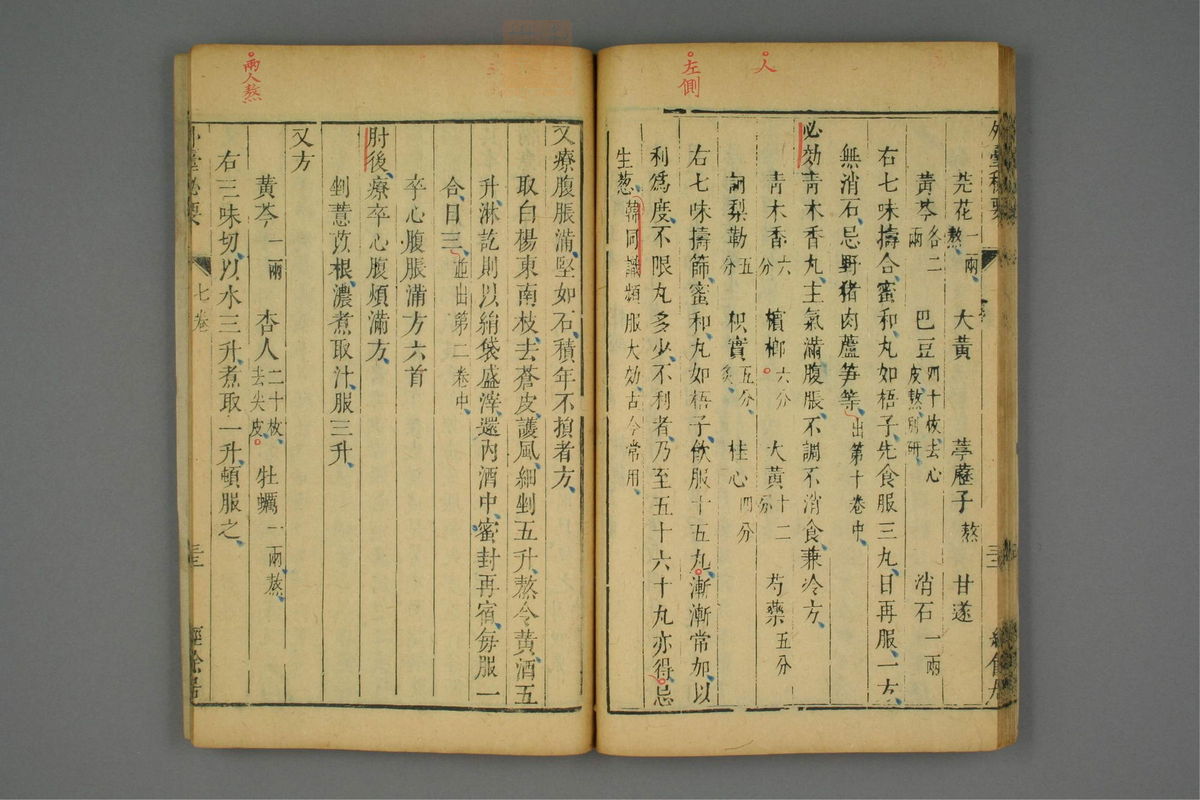 人
左側
外臺秘要
芫花一兩熬 大黃 葶藶子熬 甘遂
黃芩各二兩 巴豆四十枚去心皮熬別研 消石一兩
右七味擣合蜜和丸如梧子先食服三丸日再服一方
無消石忌野猪肉蘆笋等出第十卷中
必効青木香丸主氣滿腹脹不調不消食兼冷方
青木香六分 檳榔六分 大黃十二分 芍藥五分
訶梨勒五分 枳實五分炙 桂心四分
右七味擣篩蜜和丸如梧子飲服十五丸漸漸常加以
利爲度不限丸多少不利者乃至五十六十丸亦得忌
生葱韓同識頻服大効古今常用
兩人熬
又療腹脹滿堅如石積年不損者方
取白楊東南枝去蒼皮護風細剉五升熬令黃酒五
升淋訖則以絹袋盛滓還內酒中蜜封再宿每服一
合日三並出第二卷中
卒心腹脹滿方六首
肘後療卒心腹煩滿方
剉薏苡根濃煮取汁服三升
又方
黃芩一兩 杏人二十枚去尖皮 牡蠣一兩熬
右三味切以水三升煮取一升頓服之
外臺秘要 七卷 三 經餘居